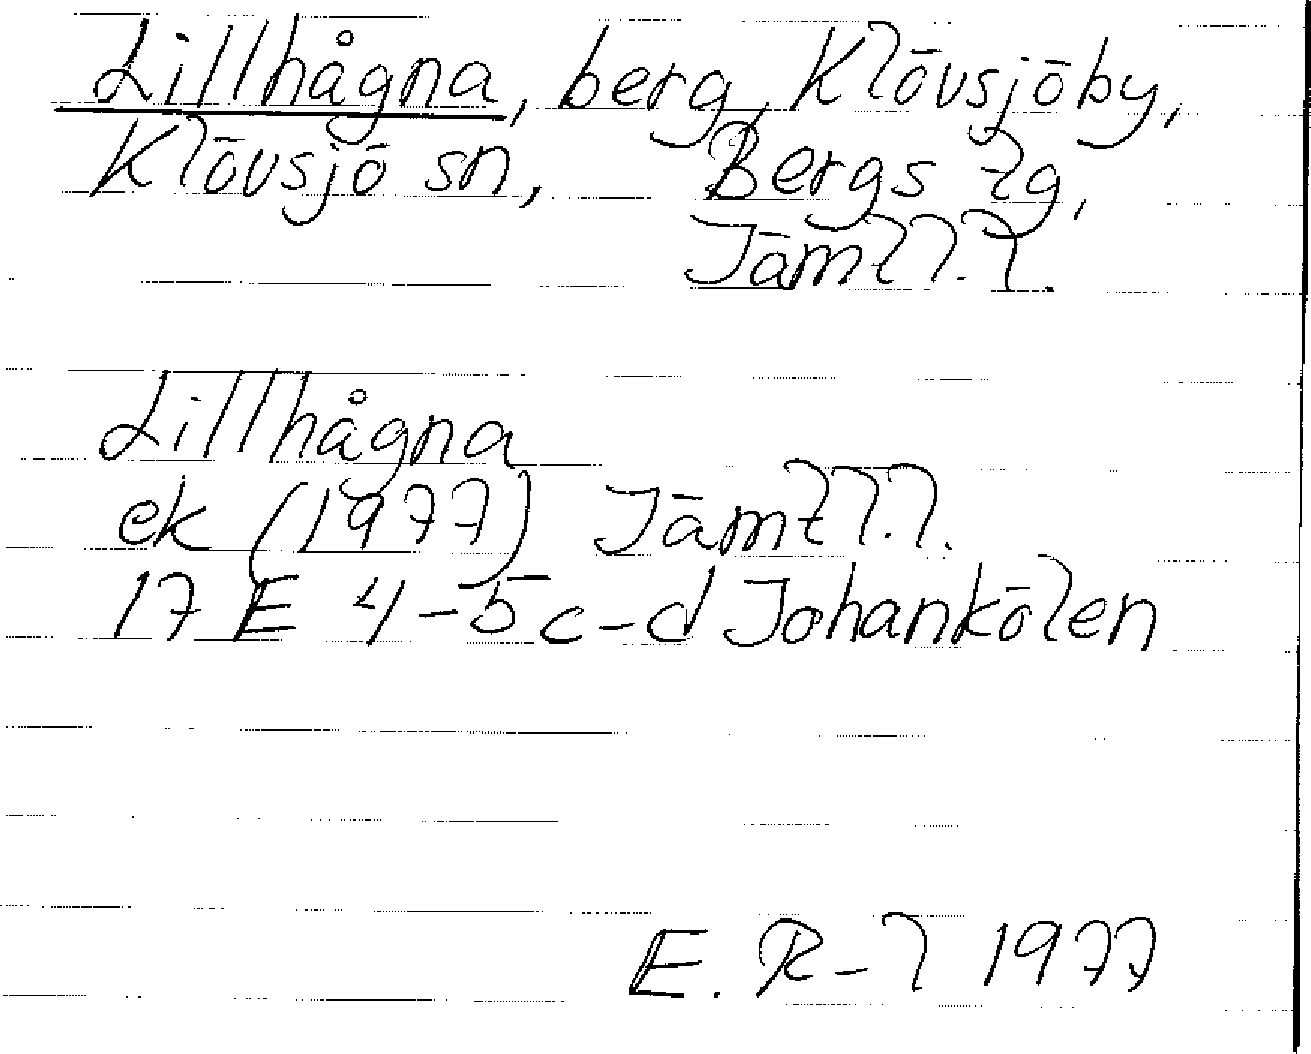 Lillhågna, berg, Klövsjöby,
Klövsjö sn, Bergs tg,
Jämtl.l.
Lillhågna
ek (1977) Jämtl.l.
17 E 4-5 c-d Johankölen
E. R-l 1977